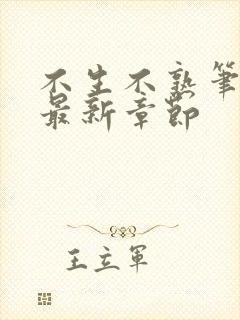 不生不熟筆
最新章節
王立軍